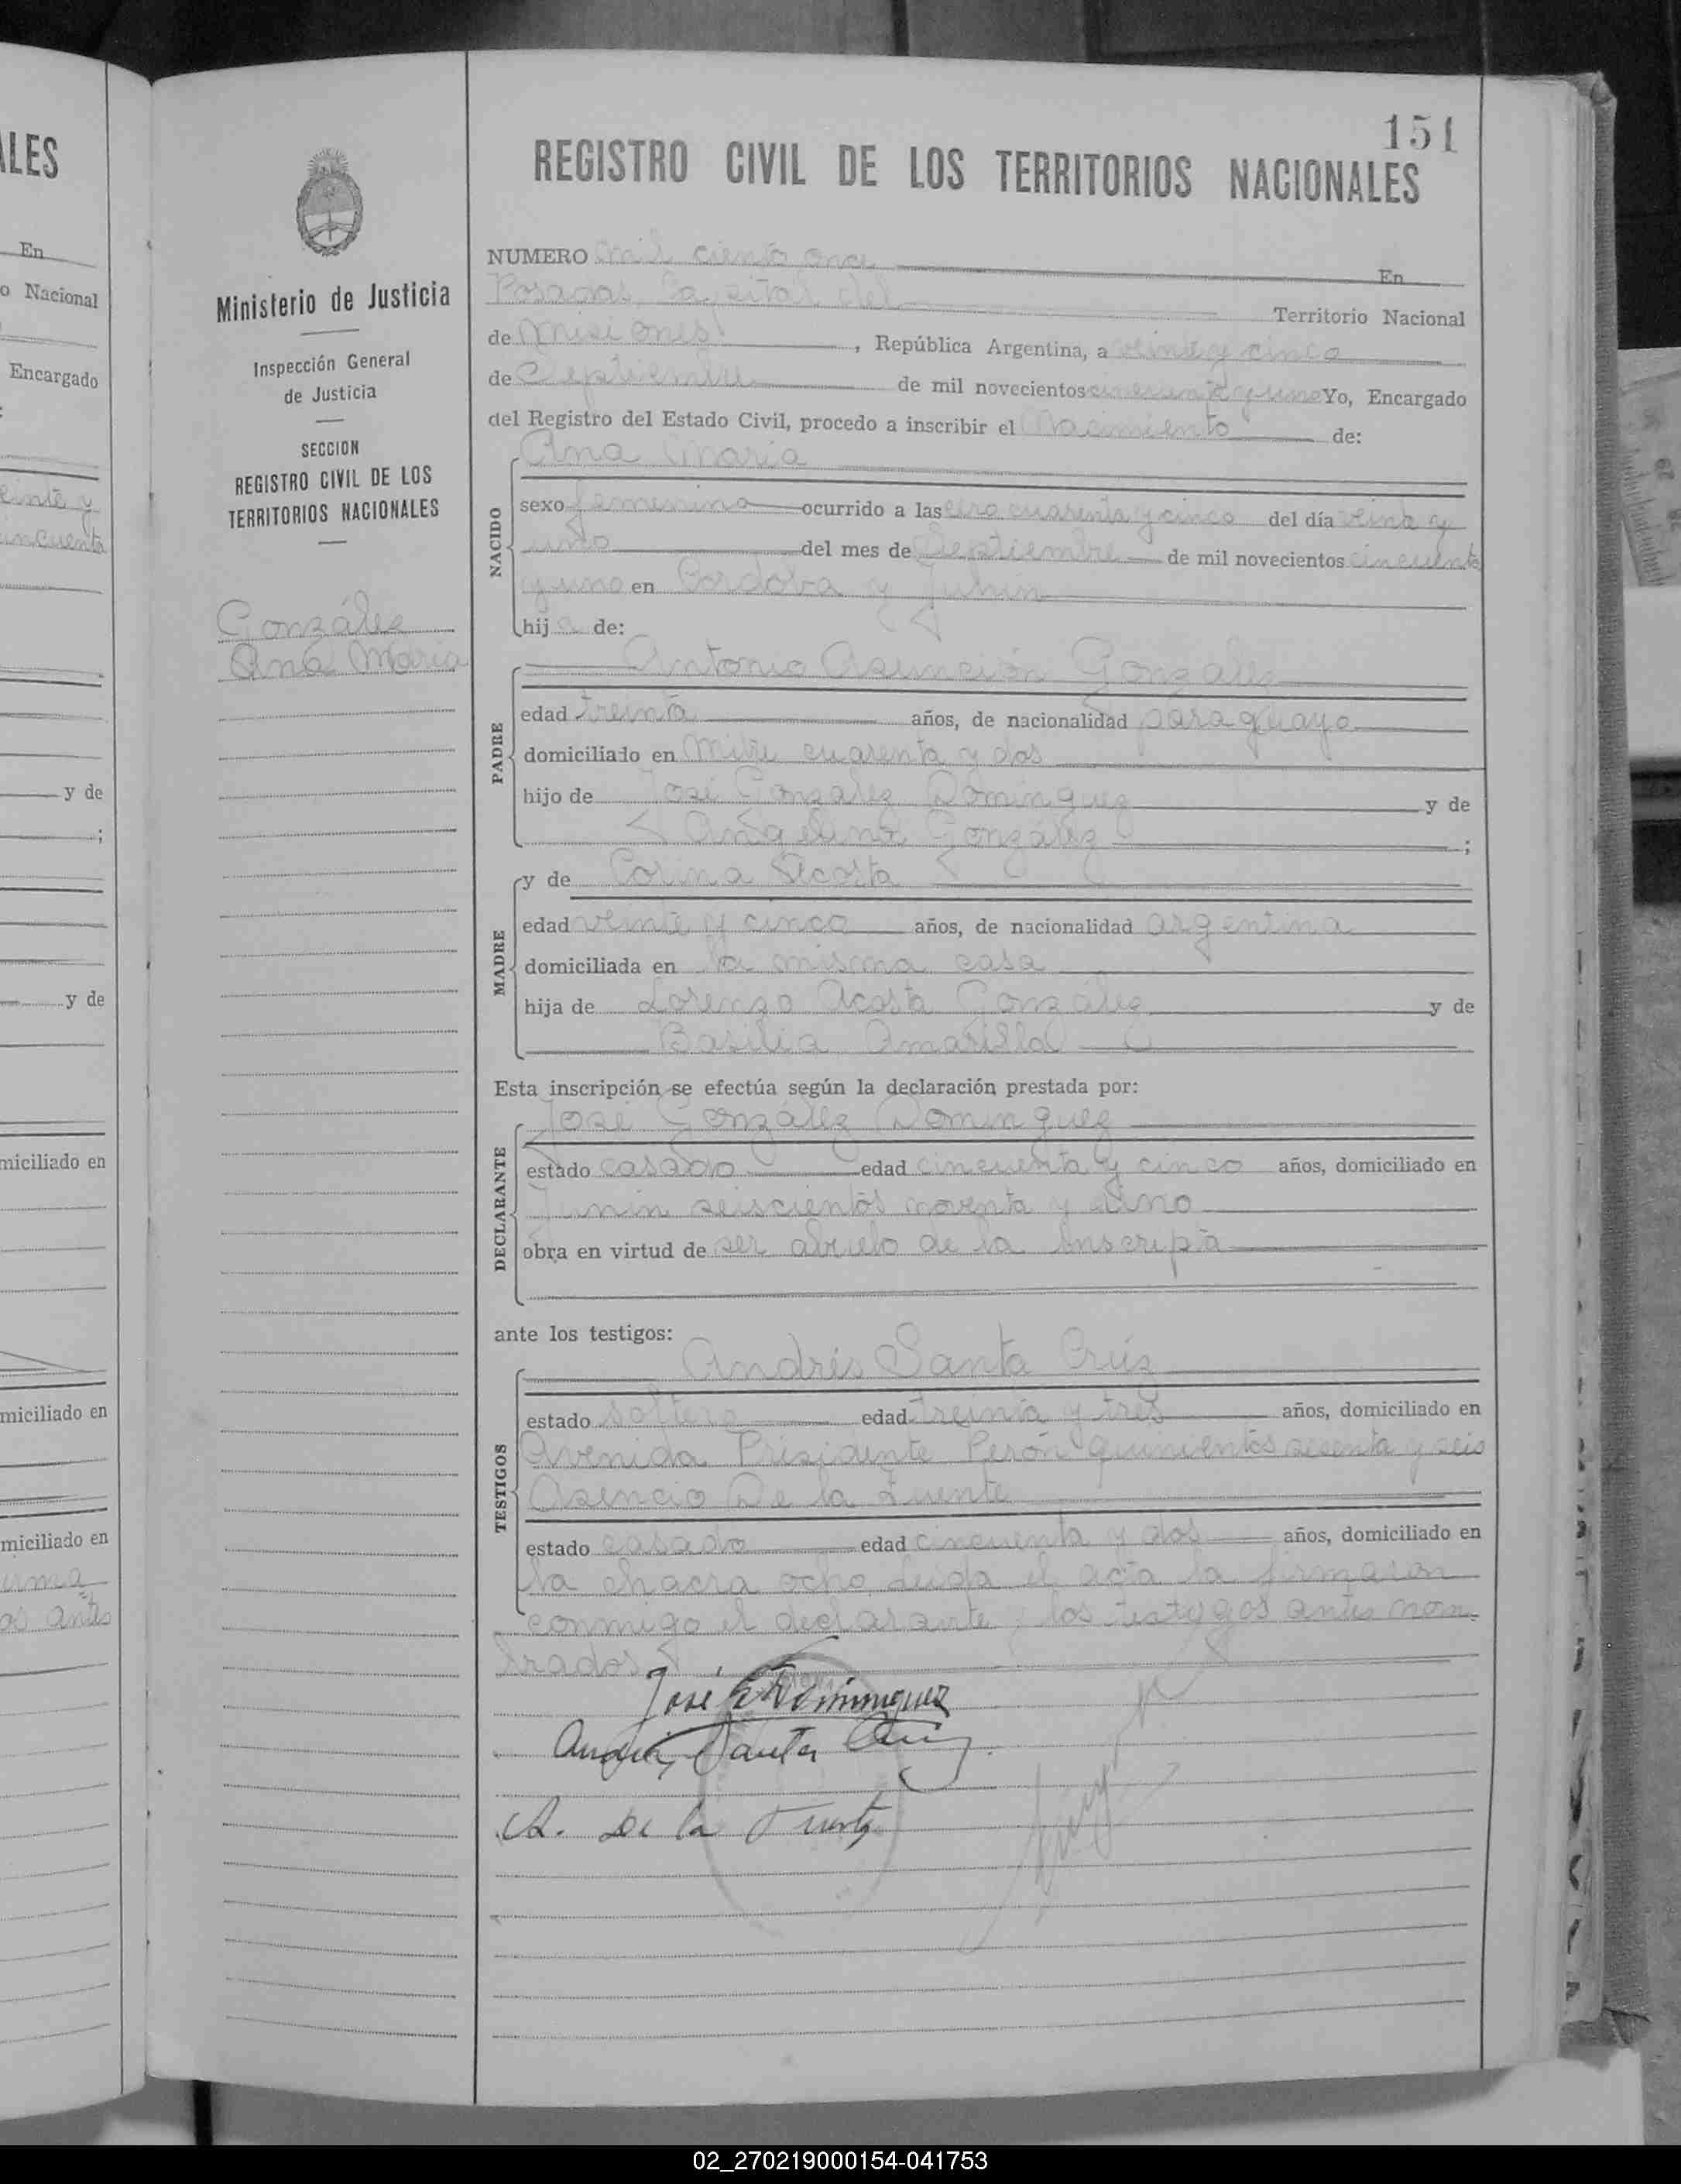 ALES
En
o Nacional
Encargado
einte y
incuenta
y de
;
y de
miciliado en
miciliado en
miciliado en
os antes
Ministerio de Justicia
Inspección General
de Justicia
SECCION
REGISTRO CIVIL DE LOS
TERRITORIOS NACIONALES
González
Ana María
151
REGISTRO CIVIL DE LOS TERRITORIOS NACIONALES
NUMERO mil ciento once En
Posadas, Capital del Territorio Nacional
de Misiones, República Argentina, a veinte y cinco
de Septiembre de mil novecientos cincuenta y uno Yo, Encargado
del Registro del Estado Civil, procedo a inscribir el Nacimiento de:
NACIDO
Ana María
sexo femenino ocurrido a las cero cuarenta y cinco del día veinte y
uno del mes de Septiembre de mil novecientos cincuenta
y uno en Córdova y Junín
hij a de:
PADRE
Antonio Asunción González
edad treinta años, de nacionalidad paraguaya
domiciliado en Mitre cuarenta y dos
hijo de José González Domínguez y de
Angelina González ;
MADRE
y de Corina Acosta
edad veinte y cinco años, de nacionalidad argentina
domiciliada en la misma casa
hija de Lorenzo Acosta González y de
Basilia Amarilla
Esta inscripción se efectúa según la declaración prestada por:
DECLARANTE
José González Domínguez
estado casado edad cincuenta y cinco años, domiciliado en
Junín seiscientos noventa y uno
obra en virtud de ser abuelo de la inscripta
ante los testigos:
TESTIGOS
Andrés Santa Crúz
estado soltero edad treinta y tres años, domiciliado en
Avenida Presidente Perón quinientos sesenta y seis
Asencio De la Fuente
estado casado edad cincuenta y dos años, domiciliado en
la chacra ocho, leida el acta la firmaron
conmigo el declarante y los testigos antes nom-
brados
José G. Dominguez
Andrés Santa Cruz
A. De la Fuente
02_270219000154-041753